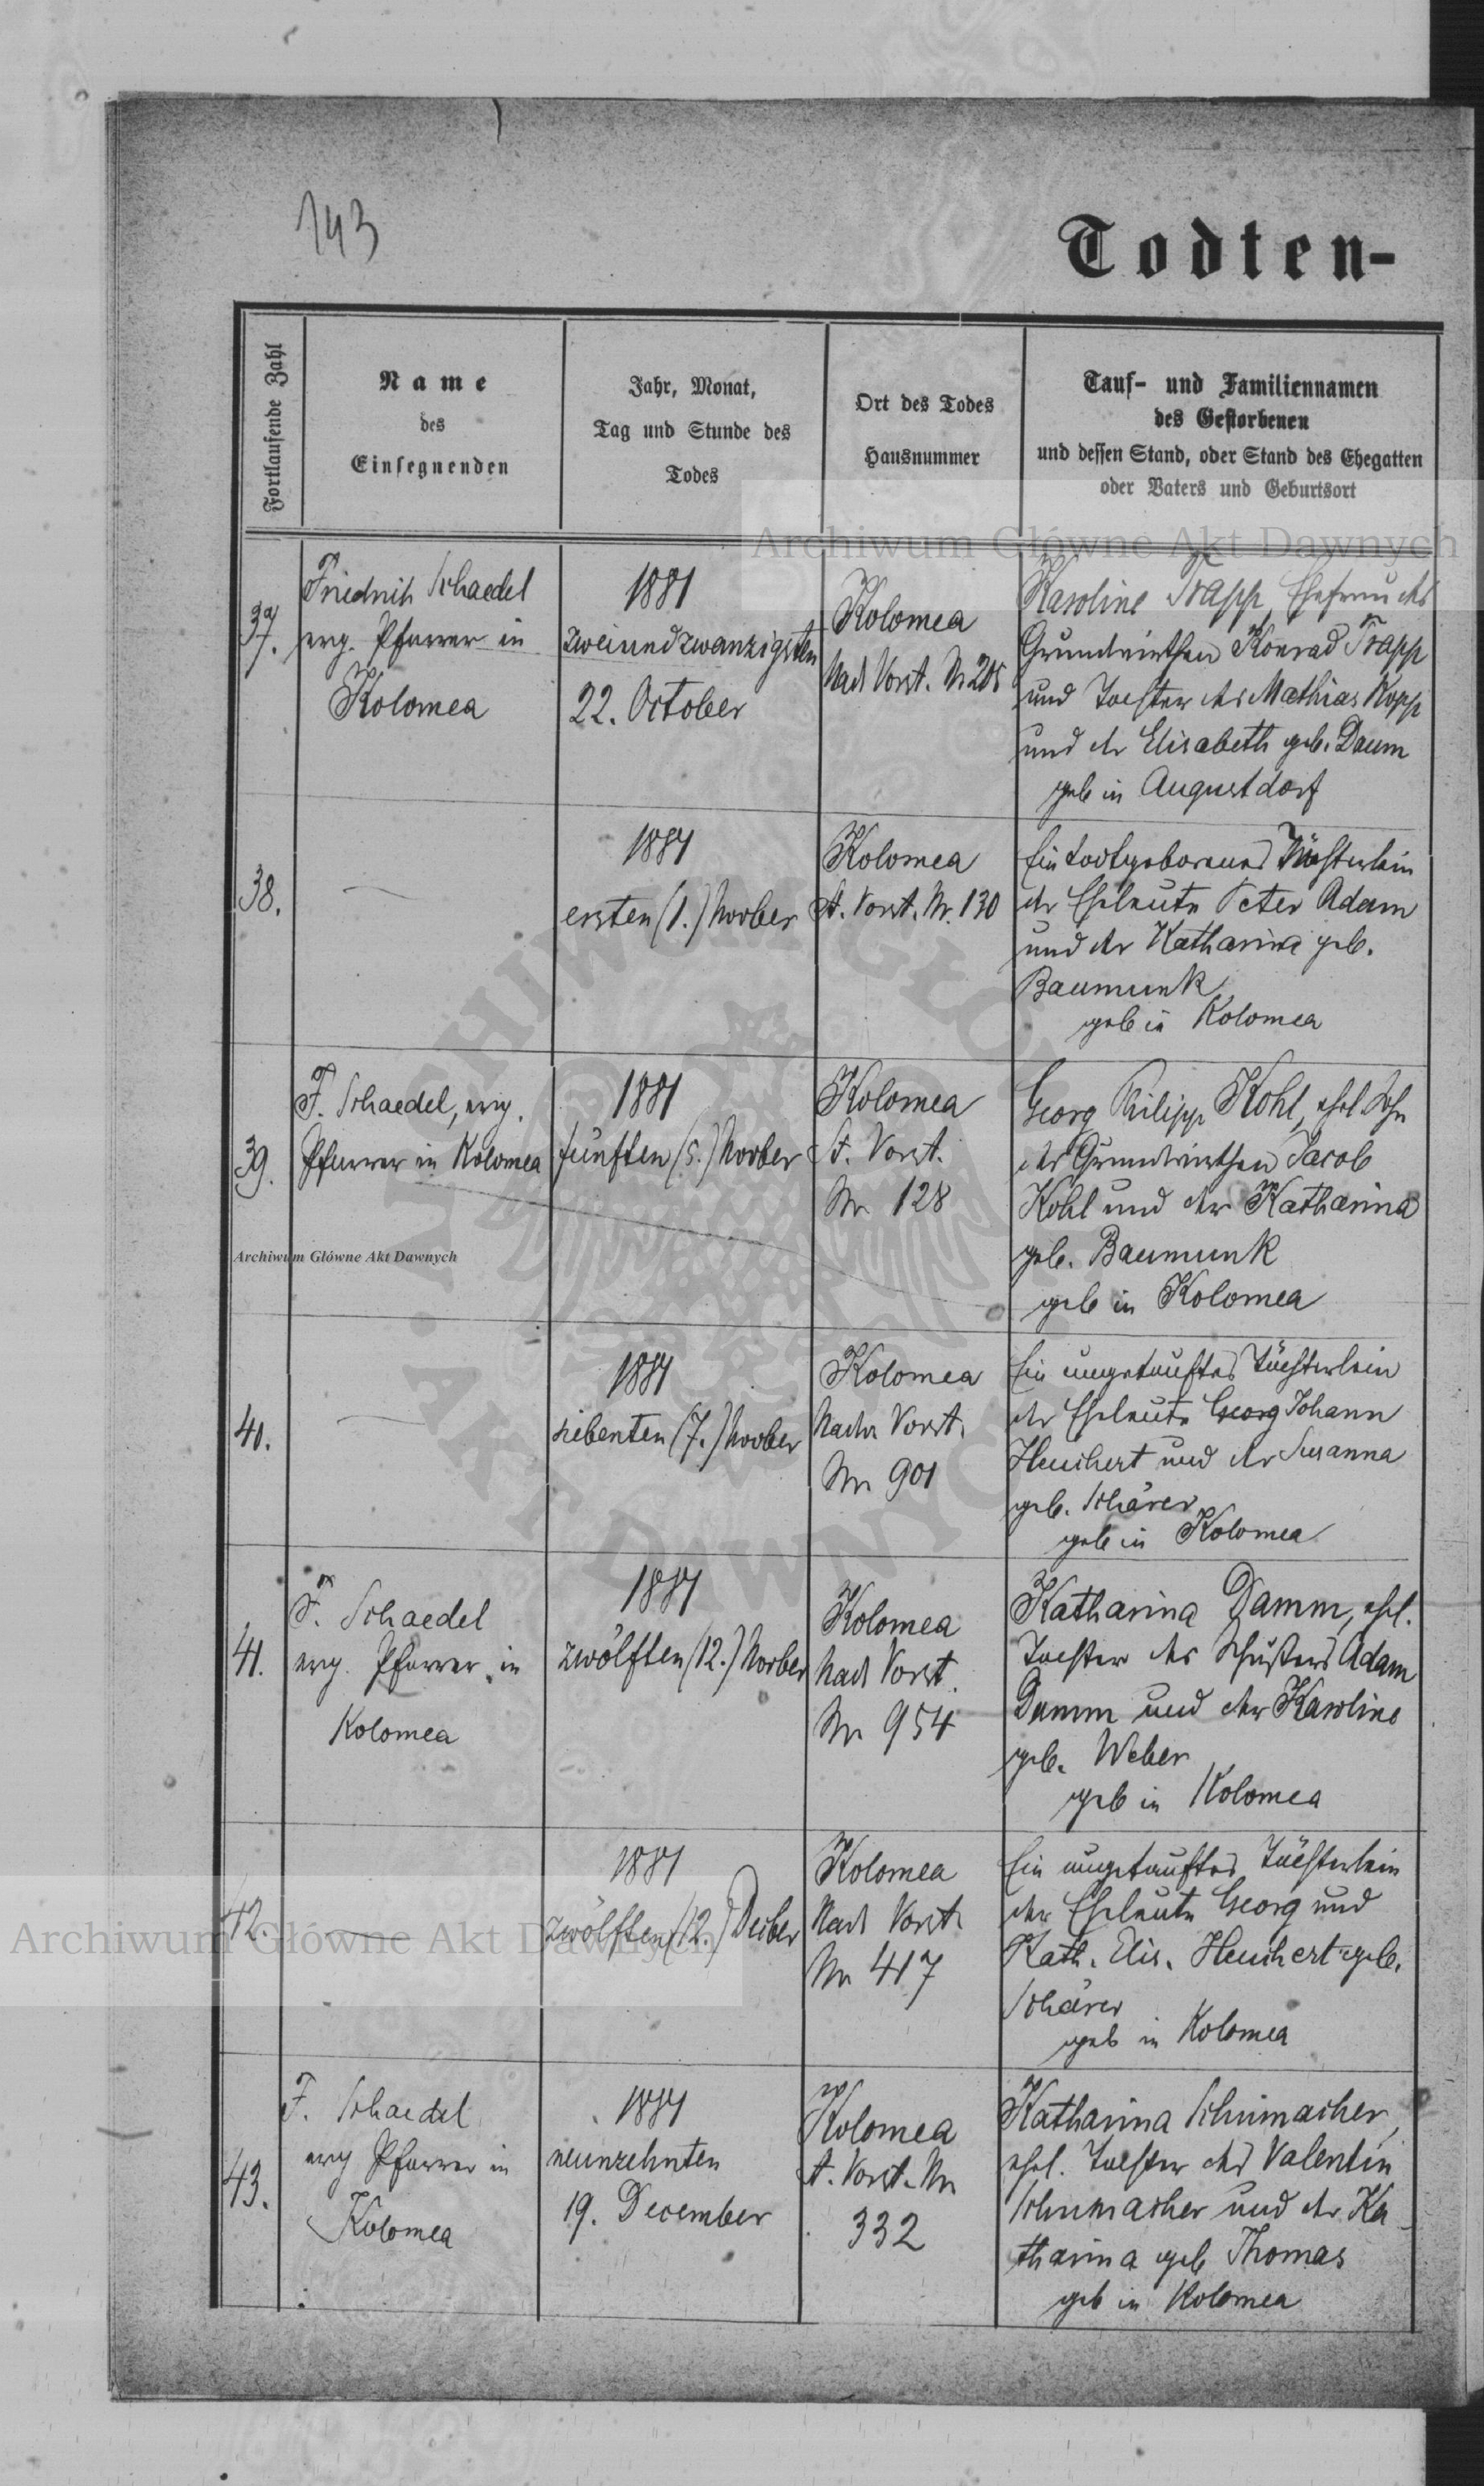 143
Todten-
Fortlaufende Zahl
Name
des
Einsegnenden
Jahr, Monat,
Tag und Stunde des
Todes
Ort des Todes
Hausnummer
Tauf- und Familiennamen
des Gestorbenen
und dessen Stand, oder Stand des Ehegatten
oder Vaters und Geburtsort
Archiwum Główne Akt Dawnych
37.
Friedrich Schaedel
evg. Pfarrer in
Kolomea
1881
zweiundzwanzigsten
22. October
Kolomea
Nad Vorst. Nr
Karoline Trapp, Ehefrau des
Grundwirthen Konrad Trapp
und Tochter des Mathias Kopp
und der Elisabeth geb. Daum
geb in Augustdorf
38.
1881
ersten (1.) Novber
Kolomea
St. Vorst. Nr. 130
Ein todtgeborenes Töchterlein
der Eheleute Peter Adam
und der Katharina geb.
Baumunk
geb in Kolomea
39.
F. Schaedel, evg.
Pfarrer in Kolomea
1881
fünften (5.) Novber
Kolomea
St. Vorst.
Nr 128
Georg Philipp Kohl, ehel Sohn
des Grundwirthen Jacob
Kohl und der Katharina
geb. Baumunk
geb in Kolomea
Archiwum Główne Akt Dawnych
40.
1881
siebenten (7.) Novber
Kolomea
Vorst.
Nr 901
Ein ungetauftes Töchterlein
der Eheleute Georg Johann
Heuchert und der Susanna
geb. Schärer
geb in Kolomea
41.
F. Schaedel
evg. Pfarrer in
Kolomea
1881
zwölften (12.) Novber
Kolomea
Nad Vorst.
Nr 954
Katharina Damm, ehel.
Tochter des Schusters Adam
Damm und der Karoline
geb. Weber
geb in Kolomea
42.
1881
zwölften (12.) Decber
Kolomea
Nad Vorst.
Nr 417
Ein ungetauftes Töchterlein
der Eheleute Georg und
Kath. Elis. Heuchert geb.
Schärer
geb in Kolomea
Archiwum Główne Akt Dawnych
43.
F. Schaedel
evg Pfarrer in
Kolomea
1881
neunzehnten
19. December
Kolomea
St. Vorst. Nr
332
Katharina Schumacher,
ehel. Tochter des Valentin
Schumacher und der Ka-
tharina geb Thomas
geb in Kolomea